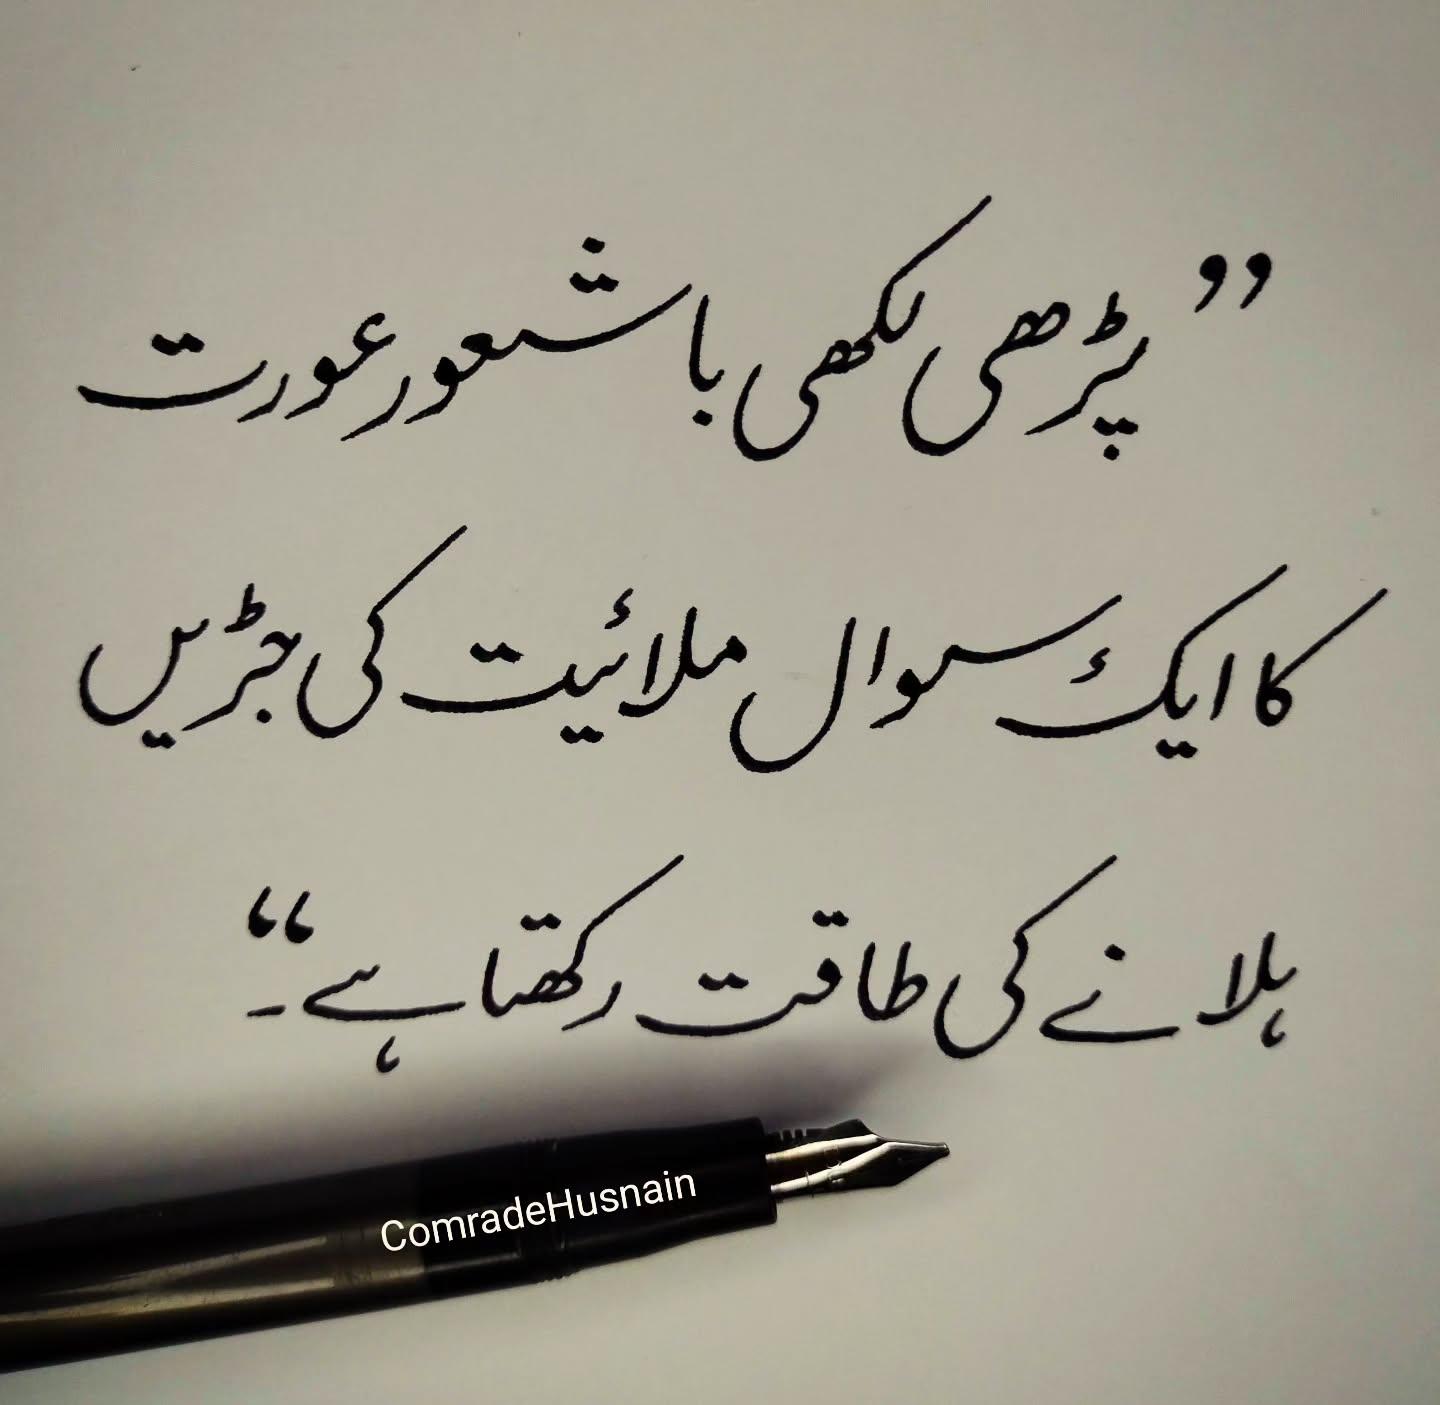 ”پڑھی لکھی باشعور عورت
کا ایک سوال ملائیت کی جڑیں
ہلانے کی طاقت رکھتا ہے۔“
ComradeHusnain